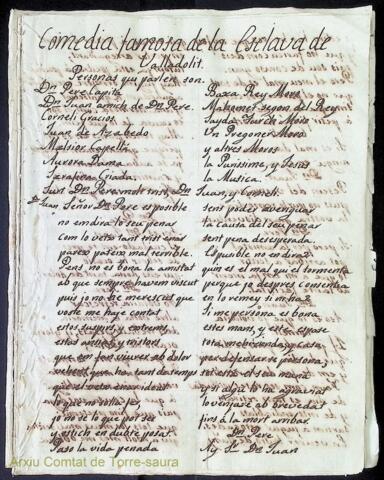 Comedia famosa de la Esclava de
Valladolit.
Personas que parlen son.
Dn Pere Capità
Dn Juan amich de Dn Pere.
Corneli Gracios
Juan de Azabedo
Melcior Capellà
Aurora Dama
Serafica Criada.
Surt Dn Pere molt trist, Dn
Dn Juan Señor Dn Pere es posible
no em dira lo seu penar
Com lo veix tant trist eras
pareix pateix mal terrible.
Pens no es bona la amistat
ab que sempre havem viscut
puis jo no he merescut que
voste me haje contat
estos suspirs, y extrems
estas ansias, y tristors
que em fan viurer ab dolor
que ha tant de temps
que el veix
lo que no solia fer
jo no se lo que pot ser
y estich en dubte posat
Paso la vida penada
Baxa Rey Moro
Mahomet segon del Rey
Sayda Sur de Moro
Un Pregoner Moro
y altres Moros
la Purissima, y Jesus
la Musica.
Juan, y Corneli.
sens poder avenguar
la causa del seu penar
sent pena desesperada.
Es posible no em dira
quin es el mal que el tormenta
perque jo despres consenta
en lo remey si ni ha?
Si me persona es bona
estes mans, y este espase
tota me hacienda, y casa
per defensar se persona;
soi este el seu mana
y si algu lo ha agraviat
lo venjaré ab brevedat
fins à la mort arribar.
Dn Pere
Ay Sr Dn Juan
Arxiu Comtat de Torre-saura